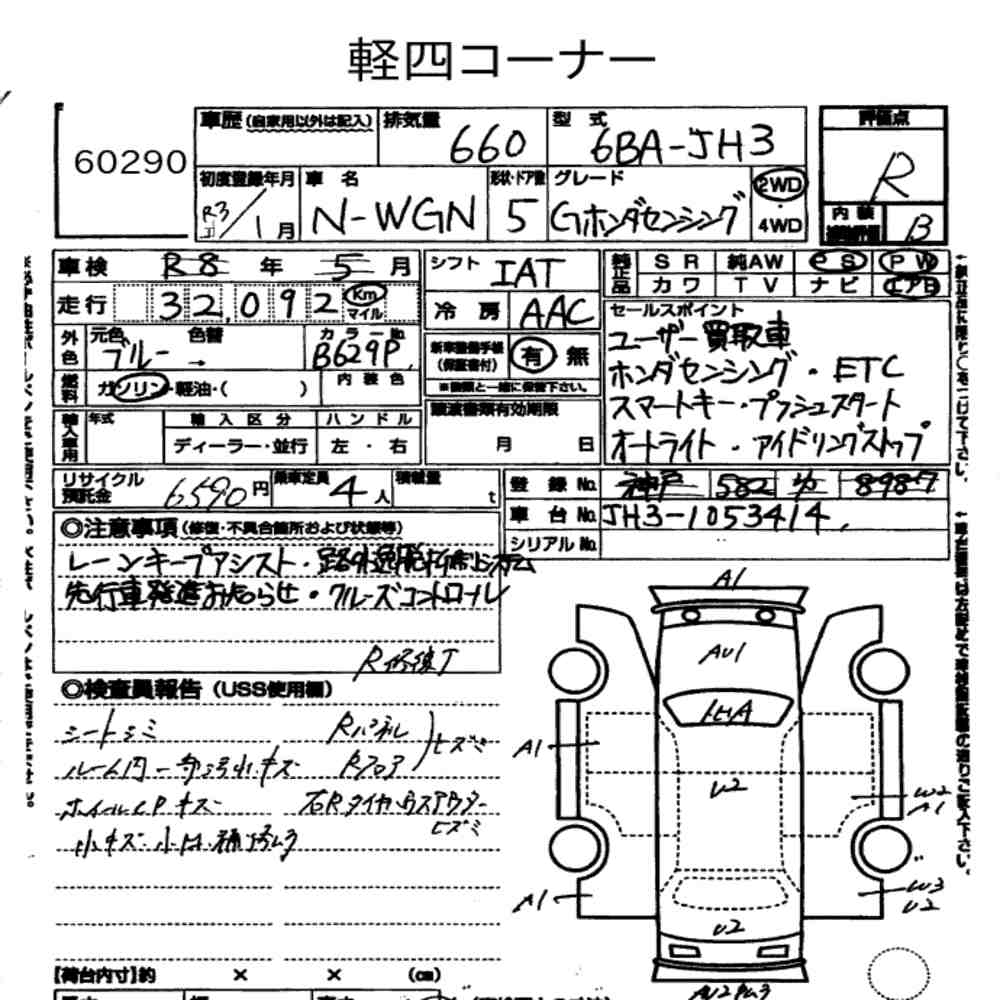 軽四コーナー
60290
車歴 (自家用以外は記入) 排気量 660 型式 6BA-JH3 評価点 R
初度登録年月 R3/1月 車名 N-WGN 形状・ドア数 5 グレード Gホンダセンシング 2WD・4WD 内装 B
車検 R8年 5月 シフト IAT 純正品 SR 純AW PS PW
走行 32,092 Km マイル 冷房 AAC カワ TV ナビ エアB
外色 元色 ブルー 色替 → カラーNo. B629P
新車整備手帳 (保証書付) 有 無
セールスポイント
ユーザー買取車
ホンダセンシング・ETC
スマートキー・プッシュスタート
オートライト・アイドリングストップ
燃料 ガソリン・軽油・( ) 内装色
※書類と一緒に保管下さい。
輸入車用 年式 輸入区分 ハンドル
ディーラー・並行 左・右
譲渡書類有効期限
月 日
リサイクル預託金 6590円 乗車定員 4人 積載量 t
登録No. 神戸 582 8987
車台No. JH3-1053414
シリアルNo.
◎注意事項 (修復・不具合箇所および状態等)
レーンキープアシスト・路外逸脱抑制システム
先行車発進お知らせ・クルーズコントロール
R修復T
◎検査員報告 (USS使用欄)
シートシミ Rパネル
ルーム内一部汚れ.キズ Rフロア ヒズミ
ホイールCPキズ 右Rタイヤハウスアウター
ヒズミ
小キズ・小凹・補修ムラ
A1
AU1
A1
U2
W2
A1
A1
W3
U2
U2
【荷台内寸】約 × × (cm)